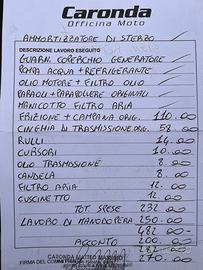 Caronda
Officina Moto
AMMORTIZZATORE DI STERZO
DESCRIZIONE LAVORO ESEGUITO
GUARN. COPERCHIO GENERATORE
POMPA ACQUA + REFRIGERANTE
OLIO MOTORE + FILTRO OLIO
PARAOLI + PARAPOLVERE ORIGINALI
MANICOTTO FILTRO ARIA
FRIZIONE + CAMPANA ORIG. 110.00
CINGHIA DI TRASMISSIONE ORIG. 58.00
RULLI 14.00
CURSORI 10.00
OLIO TRASMISSIONE 8.00
CANDELA 8.00
FILTRO ARIA 12.00
CUSCINETTO 12.00
TOT SPESE 232.00
LAVORO DI MANODOPERA 250.00
482.00
ACCONTO 200.00
282.00
CARONDA MATTEO MASSIMO
FIRMA DEL COMMITTENTE
270.00